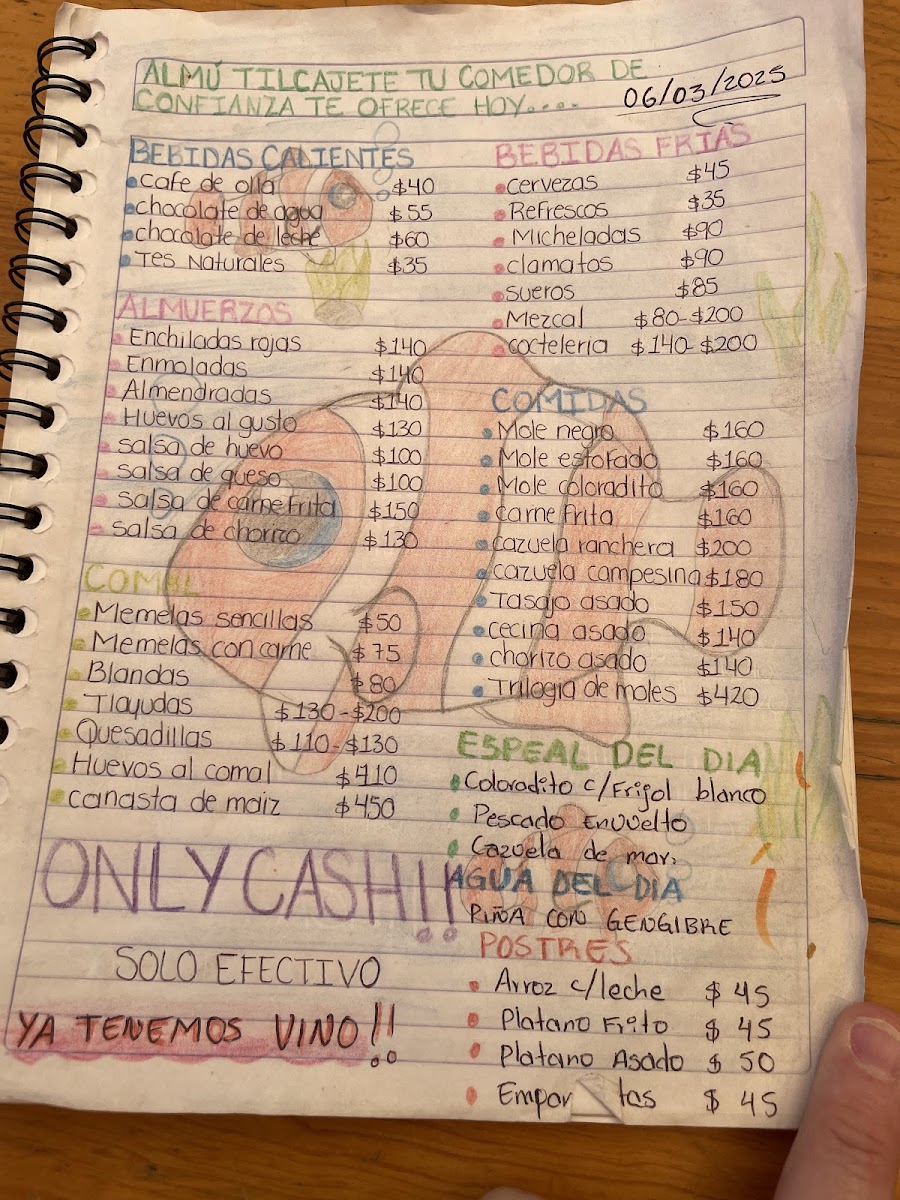 ALMÚ TILCAJETE TU COMEDOR DE
CONFIANZA TE OFRECE HOY....
06/03/2025
BEBIDAS CALIENTES
Cafe de olla $40
chocolate de agua $55
chocolate de leche $60
Tes Naturales $35
ALMUERZOS
Enchiladas rojas $140
Enmoladas $140
Almendradas $140
Huevos al gusto $130
salsa de huevo $100
salsa de queso $100
salsa de carne frita $150
salsa de chorizo $130
COMAL
Memelas sencillas $50
Memelas con carne $75
Blandas $80
Tlayudas $130-$200
Quesadillas $110-$130
Huevos al comal $110
canasta de maiz $450
ONLY CASH!!
SOLO EFECTIVO
YA TENEMOS VINO!!
BEBIDAS FRIAS
cervezas $45
Refrescos $35
Micheladas $90
clamatos $90
sueros $85
Mezcal $80-$200
cocteleria $140-$200
COMIDAS
Mole negro $160
Mole estofado $160
Mole coloradito $160
carne frita $160
cazuela ranchera $200
cazuela campesina $180
Tasajo asado $150
cecina asado $140
chorizo asado $140
Trilogia de moles $420
ESPEAL DEL DIA
Coloradito c/Frijol blanco
Pescado Envuelto
Cazuela de mar.
AGUA DEL DIA
PIÑA CON GENGIBRE
POSTRES
Arroz c/leche $45
Platano Frito $45
Platano Asado $50
$45